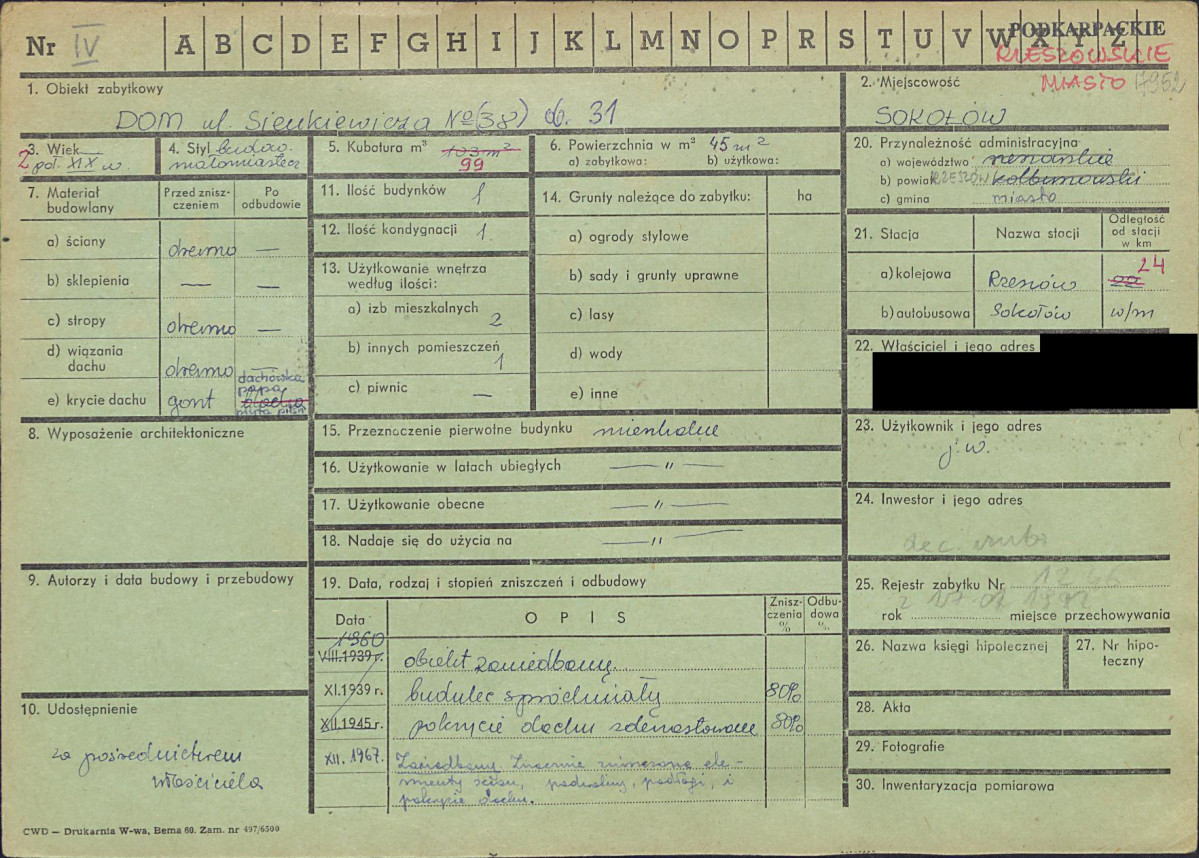 Nr IV A B C D E F G H I J K L M N O P R S T U V W X Y Z
PODKARPACKIE
RZESZOWSKIE
MIASTO 1952
1. Obiekt zabytkowy
DOM ul. Sienkiewicza No (38) ob. 31
2. Miejscowość
SOKOŁÓW
3. Wiek
2 poł. XIX w.
4. Styl budow.
małomiastecz
5. Kubatura m³ 103 m²
99
6. Powierzchnia w m² 45 m²
a) zabytkowa: b) użytkowa:
20. Przynależność administracyjna
a) województwo rzeszowskie
b) powiat RZESZÓW kolbuszowski
c) gmina miasto
7. Materiał budowlany
Przed zniszczeniem
Po odbudowie
a) ściany drewno —
b) sklepienia — —
c) stropy drewno —
d) wiązania dachu drewno
e) krycie dachu gont
dachówka
papa
blacha
płyta pilśn
11. Ilość budynków 1
12. Ilość kondygnacji 1
13. Użytkowanie wnętrza
według ilości:
a) izb mieszkalnych 2
b) innych pomieszczeń 1
c) piwnic —
14. Grunty należące do zabytku: ha
a) ogrody stylowe
b) sady i grunty uprawne
c) lasy
d) wody
e) inne
21. Stacja Nazwa stacji Odległość od stacji w km
a) kolejowa Rzeszów 24
b) autobusowa Sokołów w/m
22. Właściciel i jego adres
8. Wyposażenie architektoniczne
15. Przeznaczenie pierwotne budynku mieszkalne
16. Użytkowanie w latach ubiegłych — " —
17. Użytkowanie obecne — " —
18. Nadaje się do użycia na — " —
23. Użytkownik i jego adres
j.w.
24. Inwestor i jego adres
dec.
25. Rejestr zabytku Nr
rok miejsce przechowywania
9. Autorzy i data budowy i przebudowy
19. Data, rodzaj i stopień zniszczeń i odbudowy
Data OPIS Zniszczenia % Odbudowa %
1960
VIII.1939 r. obiekt zaniedbany.
XI.1939 r. budulec spróchniały 80%
XII.1945 r. pokrycie dachu zdewastowane 80%
XII. 1967. Zaniedbany. Znacznie zniszczone ele-
menty ścian, podwaliny, podłogi, i
pokrycie dachu.
26. Nazwa księgi hipotecznej
27. Nr hipoteczny
10. Udostępnienie
za pośrednictwem
właściciela
28. Akta
29. Fotografie
30. Inwentaryzacja pomiarowa
CWD — Drukarnia W-wa, Bema 60. Zam. nr 497/6500